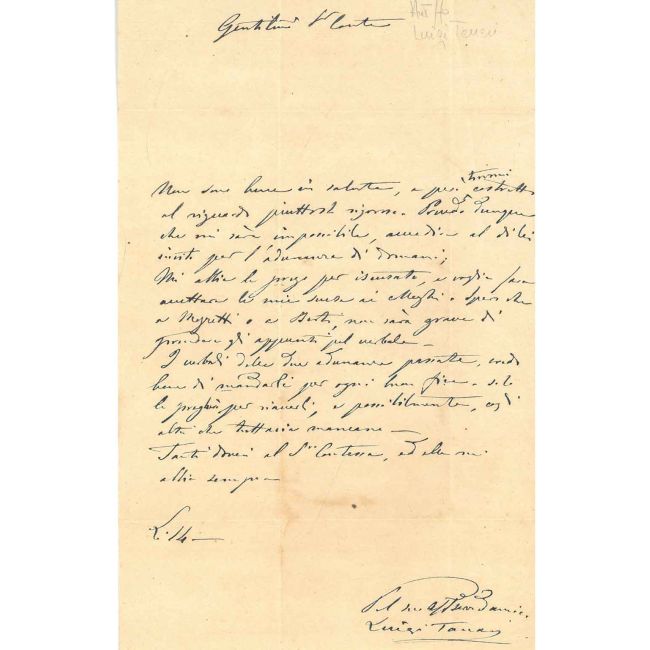 Gentilmo Sr Conte
Luigi Tanari
Non sono bene in salute, e perciò costretto
al riguardo piuttosto rigoroso. Prevedo dunque
che mi sarà impossibile, accedere al di lei
invito per l'adunanza di domani;
Mi abbia la prego per iscusato, e voglia fare
accettare le mie scuse ai Colleghi e spero che
a Negretti o a Berti, non sarà grave di
prendere gli appunti pel verbale —
I verbali delle due adunanze passate, credo
bene di mandarli per ogni buon fine — solo
la pregherò per riaverli, e possibilmente, cogli
altri che tuttavia mancano —
Tanti doveri al Sra Contessa, ed ella mi
abbia sempre
L. 14 —
Pel suo
Luigi Tanari